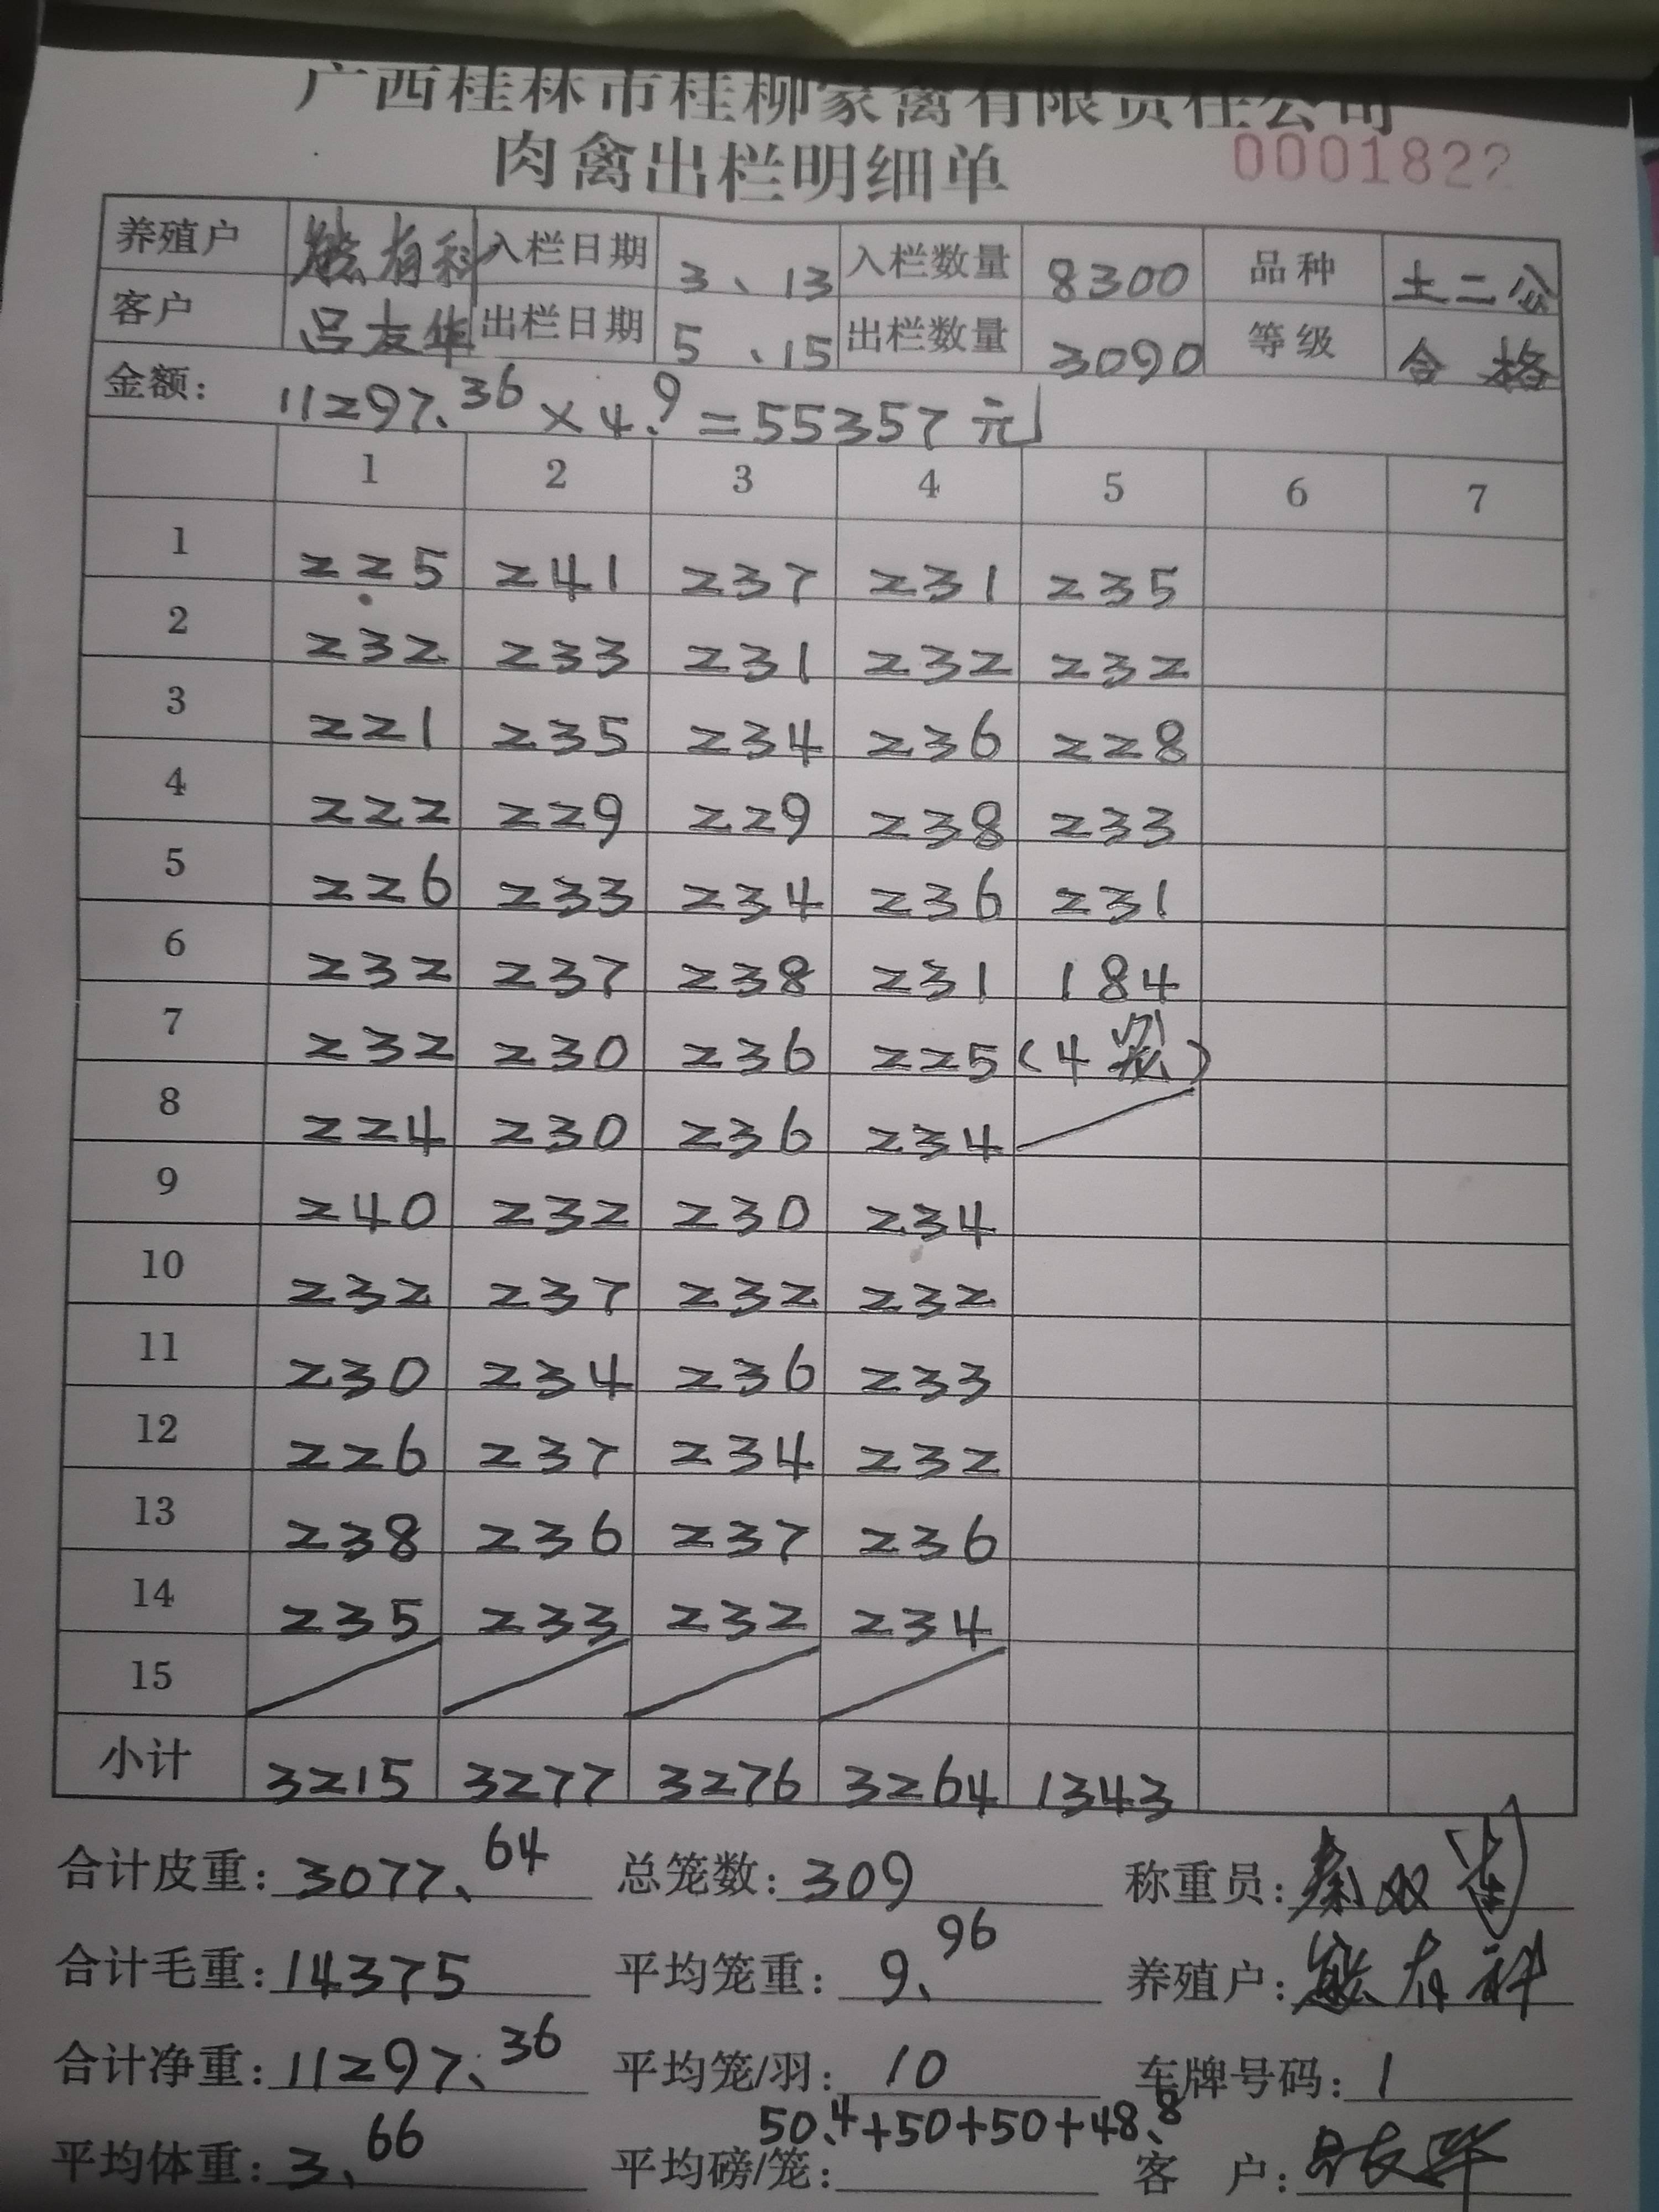 广西桂林市桂柳家禽有限责任公司
肉禽出栏明细单 0001822
养殖户 熊有科 入栏日期 3、13 入栏数量 8300 品种 土二公
客户 吕友华 出栏日期 5、15 出栏数量 3090 等级 合格
金额: 11297.36×4.9=55357元
1 2 3 4 5 6 7
1 225 241 237 231 235
2 232 233 231 232 232
3 221 235 234 236 228
4 222 229 229 238 233
5 226 233 234 236 231
6 232 237 238 231 184
7 232 230 236 225 (4576)
8 224 230 236 234
9 240 232 230 234
10 232 237 232 232
11 230 234 236 233
12 226 237 234 232
13 238 236 237 236
14 235 233 232 234
15
小计 3215 3277 3276 3264 1343
合计皮重: 3077、64 总笼数: 309 称重员: 秦双
合计毛重: 14375 平均笼重: 9、96 养殖户: 熊有科
合计净重: 11297、36 平均笼/羽: 10 车牌号码: 1
50、4+50+50+48、8
平均体重: 3、66 平均磅/笼: 客户: 吕友华